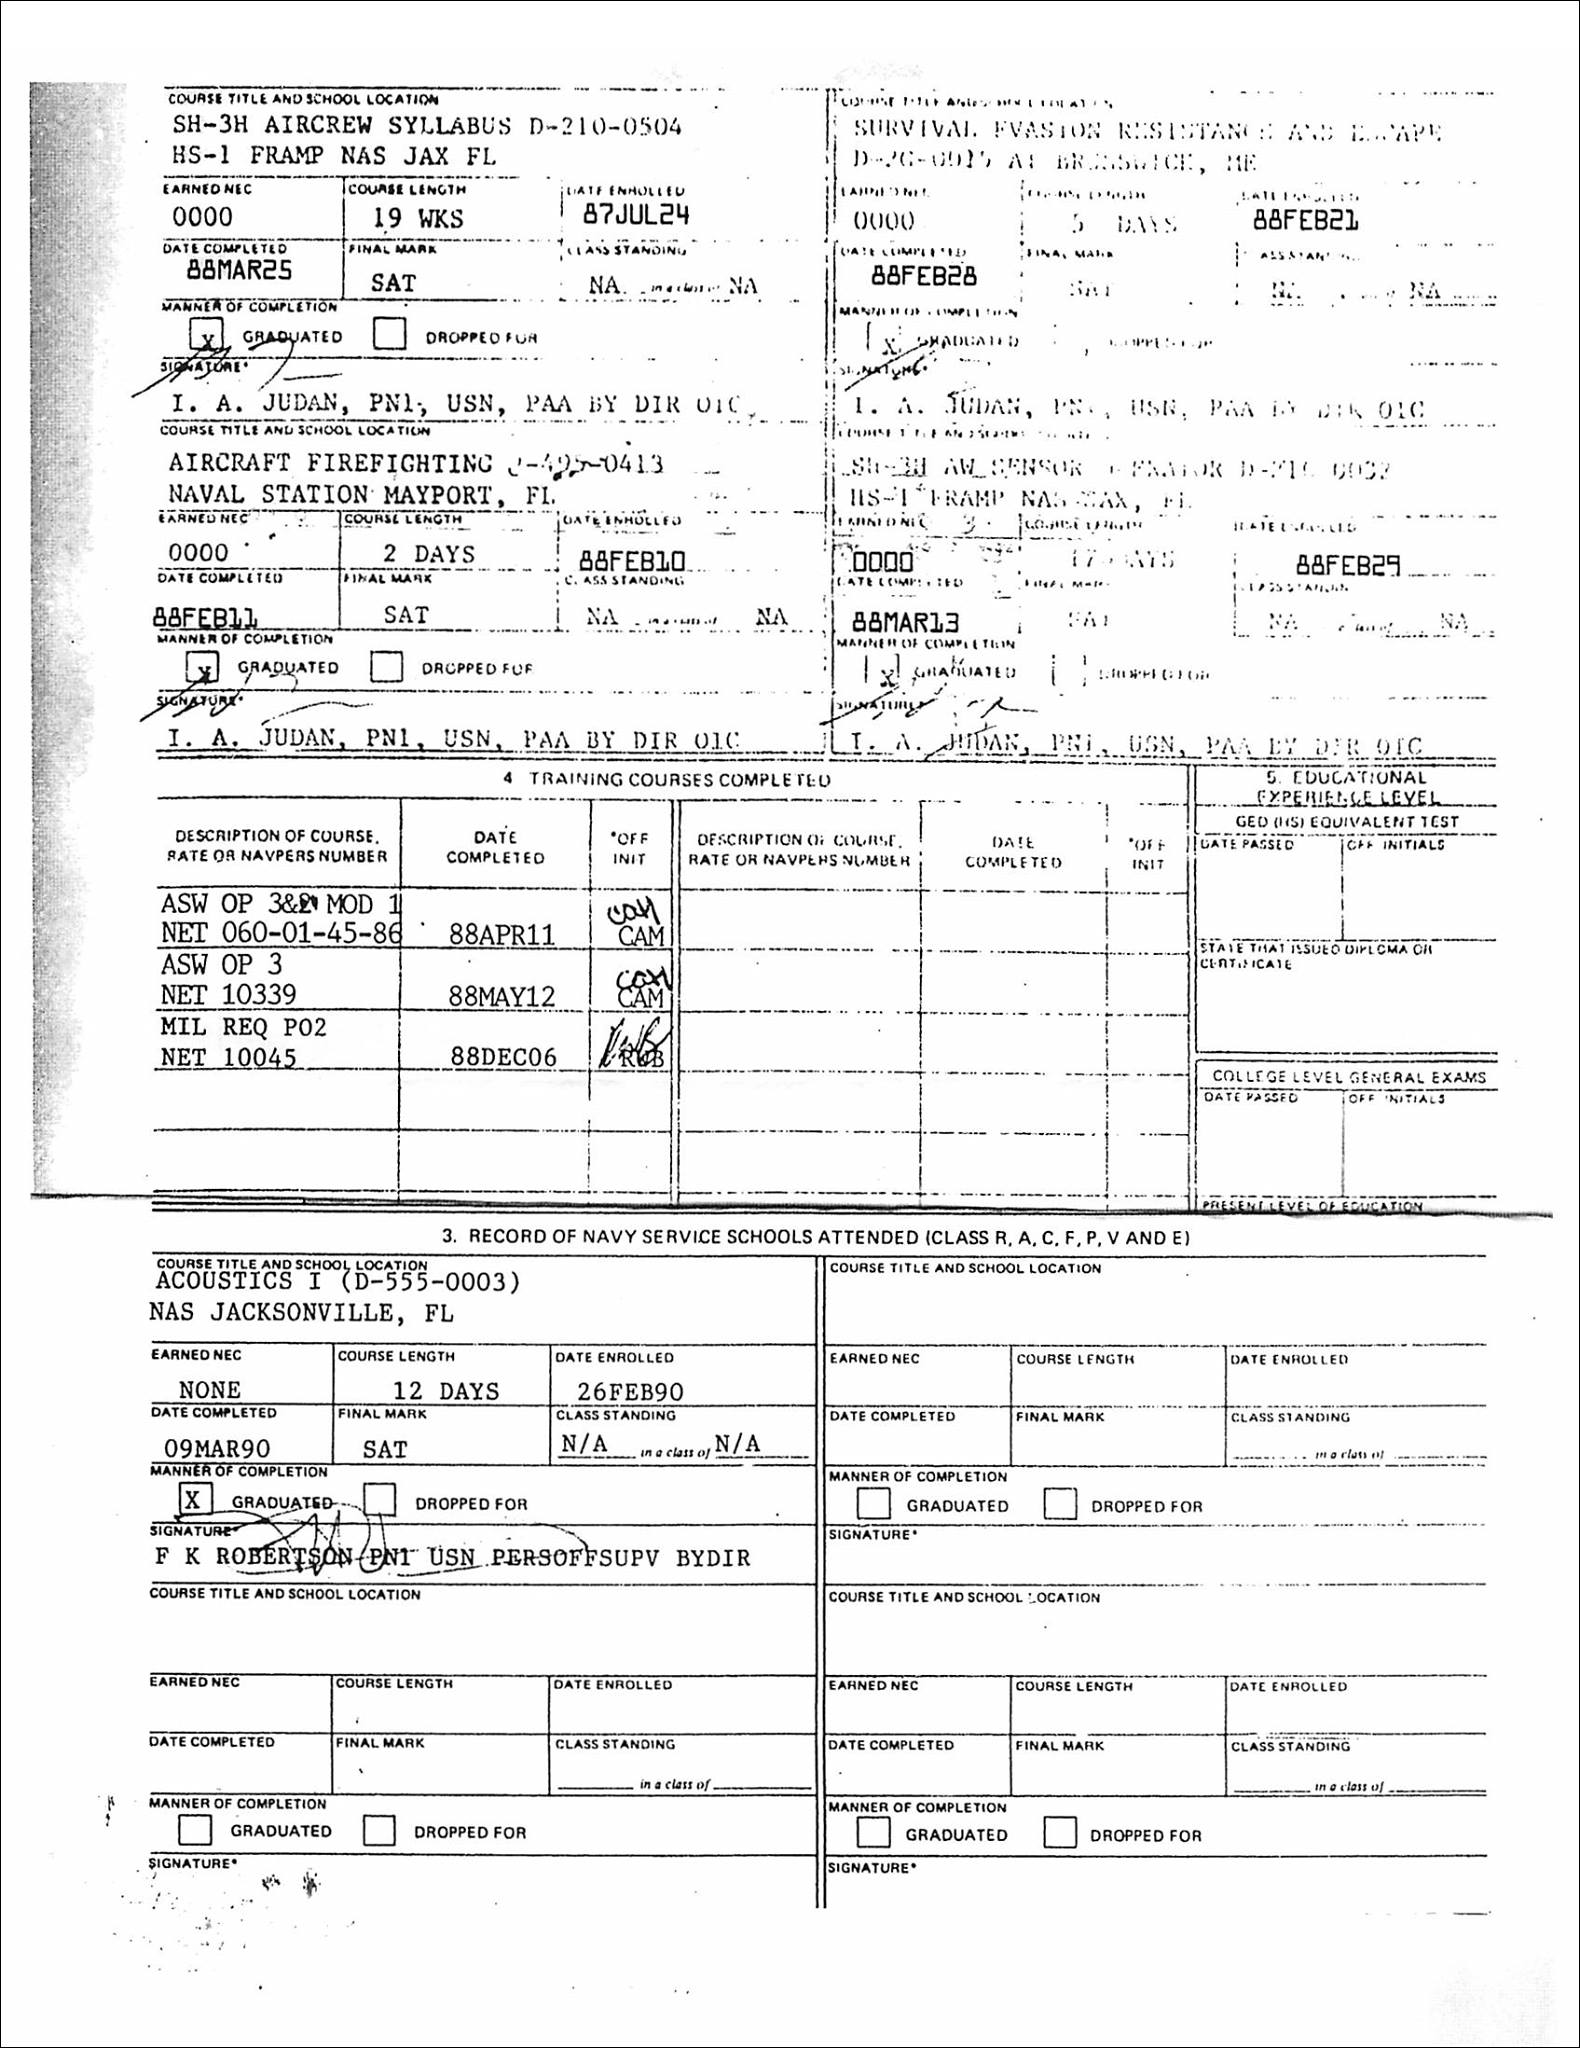 COURSE TITLE AND SCHOOL LOCATION
SH-3H AIRCREW SYLLABUS D-210-0504
HS-1 FRAMP NAS JAX FL
EARNED NEC COURSE LENGTH DATE ENROLLED
0000 19 WKS 87JUL24
DATE COMPLETED FINAL MARK CLASS STANDING
88MAR25 SAT NA in a class of NA
MANNER OF COMPLETION
X GRADUATED DROPPED FOR
SIGNATURE*
I. A. JUDAN, PN1, USN, PAA BY DIR OIC
COURSE TITLE AND SCHOOL LOCATION
SURVIVAL EVASION RESISTANCE AND ESCAPE
AT BRUNSWICK, ME
EARNED NEC COURSE LENGTH DATE ENROLLED
0000 5 DAYS 88FEB21
DATE COMPLETED FINAL MARK CLASS STANDING
88FEB28 SAT NA NA
MANNER OF COMPLETION
X GRADUATED DROPPED FOR
SIGNATURE*
I. A. JUDAN, PN1, USN, PAA BY DIR OIC
COURSE TITLE AND SCHOOL LOCATION
AIRCRAFT FIREFIGHTING J-495-0413
NAVAL STATION MAYPORT, FL
EARNED NEC COURSE LENGTH DATE ENROLLED
0000 2 DAYS 88FEB10
DATE COMPLETED FINAL MARK CLASS STANDING
88FEB11 SAT NA in a class of NA
MANNER OF COMPLETION
X GRADUATED DROPPED FOR
SIGNATURE*
I. A. JUDAN, PN1, USN, PAA BY DIR OIC
COURSE TITLE AND SCHOOL LOCATION
SH-3H AW SENSOR OPERATOR
HS-1 FRAMP NAS JAX, FL
EARNED NEC COURSE LENGTH DATE ENROLLED
0000 DAYS 88FEB29
DATE COMPLETED FINAL MARK CLASS STANDING
88MAR13 SAT NA NA
MANNER OF COMPLETION
X GRADUATED DROPPED FOR
SIGNATURE*
I. A. JUDAN, PN1, USN, PAA BY DIR OIC
4 TRAINING COURSES COMPLETED
DESCRIPTION OF COURSE, RATE OR NAVPERS NUMBER DATE COMPLETED *OFF INIT DESCRIPTION OF COURSE, RATE OR NAVPERS NUMBER DATE COMPLETED *OFF INIT
ASW OP 3&2 MOD 1
NET 060-01-45-86 88APR11 CAM
ASW OP 3
NET 10339 88MAY12 CAM
MIL REQ PO2
NET 10045 88DEC06 RWB
5. EDUCATIONAL
EXPERIENCE LEVEL
GED (HS) EQUIVALENT TEST
DATE PASSED OFF INITIALS
STATE THAT ISSUED DIPLOMA OR
CERTIFICATE
COLLEGE LEVEL GENERAL EXAMS
DATE PASSED OFF INITIALS
PRESENT LEVEL OF EDUCATION
3. RECORD OF NAVY SERVICE SCHOOLS ATTENDED (CLASS R, A, C, F, P, V AND E)
COURSE TITLE AND SCHOOL LOCATION
ACOUSTICS I (D-555-0003)
NAS JACKSONVILLE, FL
EARNED NEC COURSE LENGTH DATE ENROLLED
NONE 12 DAYS 26FEB90
DATE COMPLETED FINAL MARK CLASS STANDING
09MAR90 SAT N/A in a class of N/A
MANNER OF COMPLETION
X GRADUATED DROPPED FOR
SIGNATURE*
F K ROBERTSON PN1 USN PERSOFFSUPV BYDIR
COURSE TITLE AND SCHOOL LOCATION
EARNED NEC COURSE LENGTH DATE ENROLLED
DATE COMPLETED FINAL MARK CLASS STANDING
in a class of
MANNER OF COMPLETION
GRADUATED DROPPED FOR
SIGNATURE*
COURSE TITLE AND SCHOOL LOCATION
EARNED NEC COURSE LENGTH DATE ENROLLED
DATE COMPLETED FINAL MARK CLASS STANDING
in a class of
MANNER OF COMPLETION
GRADUATED DROPPED FOR
SIGNATURE*
COURSE TITLE AND SCHOOL LOCATION
EARNED NEC COURSE LENGTH DATE ENROLLED
DATE COMPLETED FINAL MARK CLASS STANDING
in a class of
MANNER OF COMPLETION
GRADUATED DROPPED FOR
SIGNATURE*